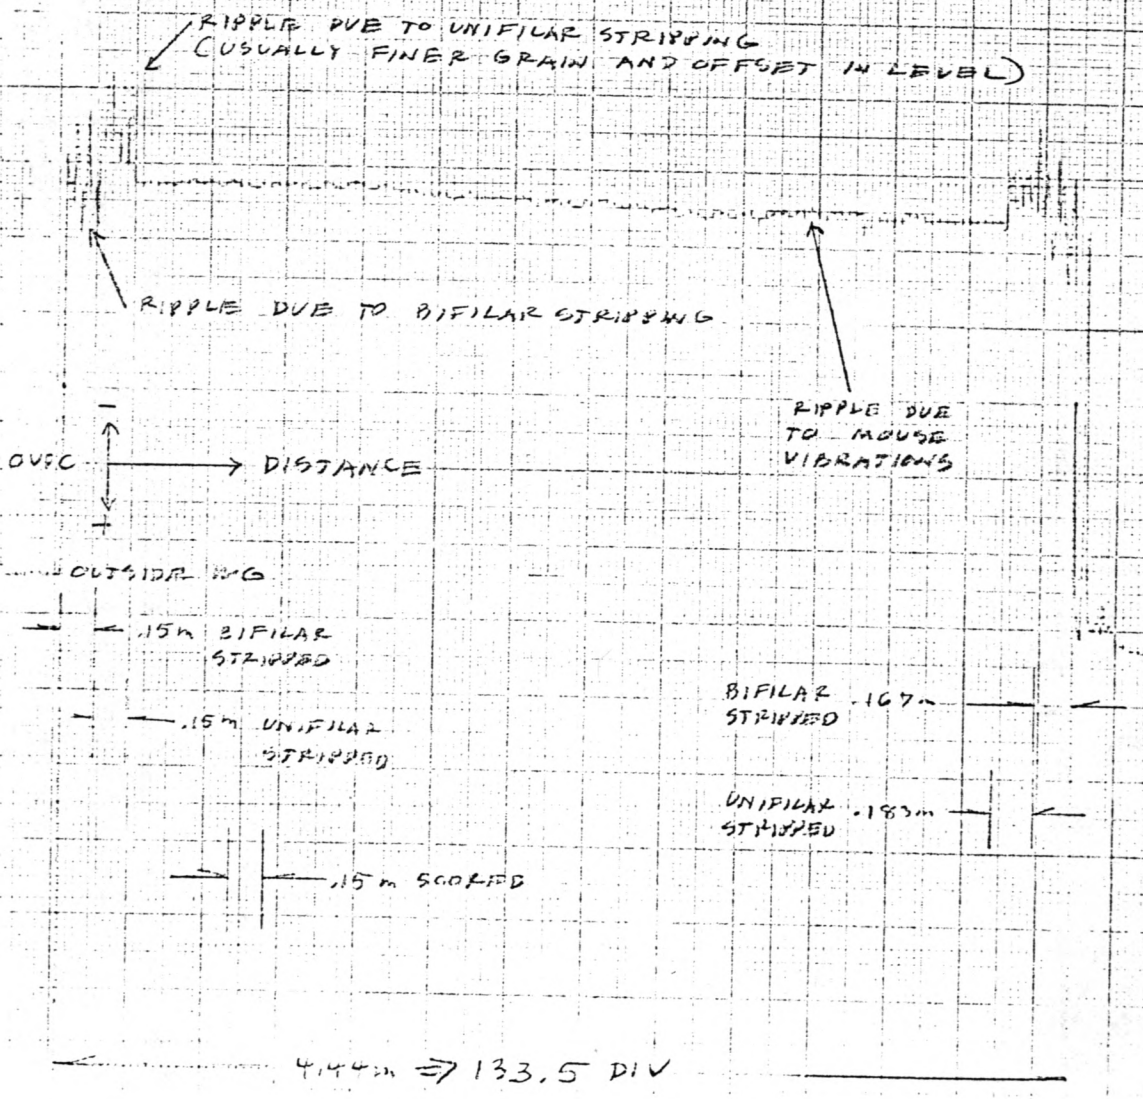 RIPPLE DUE TO UNIFILAR STRIPPING
(USUALLY FINER GRAIN AND OFFSET IN LEVEL)
RIPPLE DUE TO BIFILAR STRIPPING
RIPPLE DUE
TO MOUSE
VIBRATIONS
−
DISTANCE
+
OUTSIDE
.15m BIFILAR
STRIPPED
.15m UNIFILAR
STRIPPED
BIFILAR .167m
STRIPPED
UNIFILAR .183m
STRIPPED
.15m SCORED
4.44m ⇒ 133.5 DIV